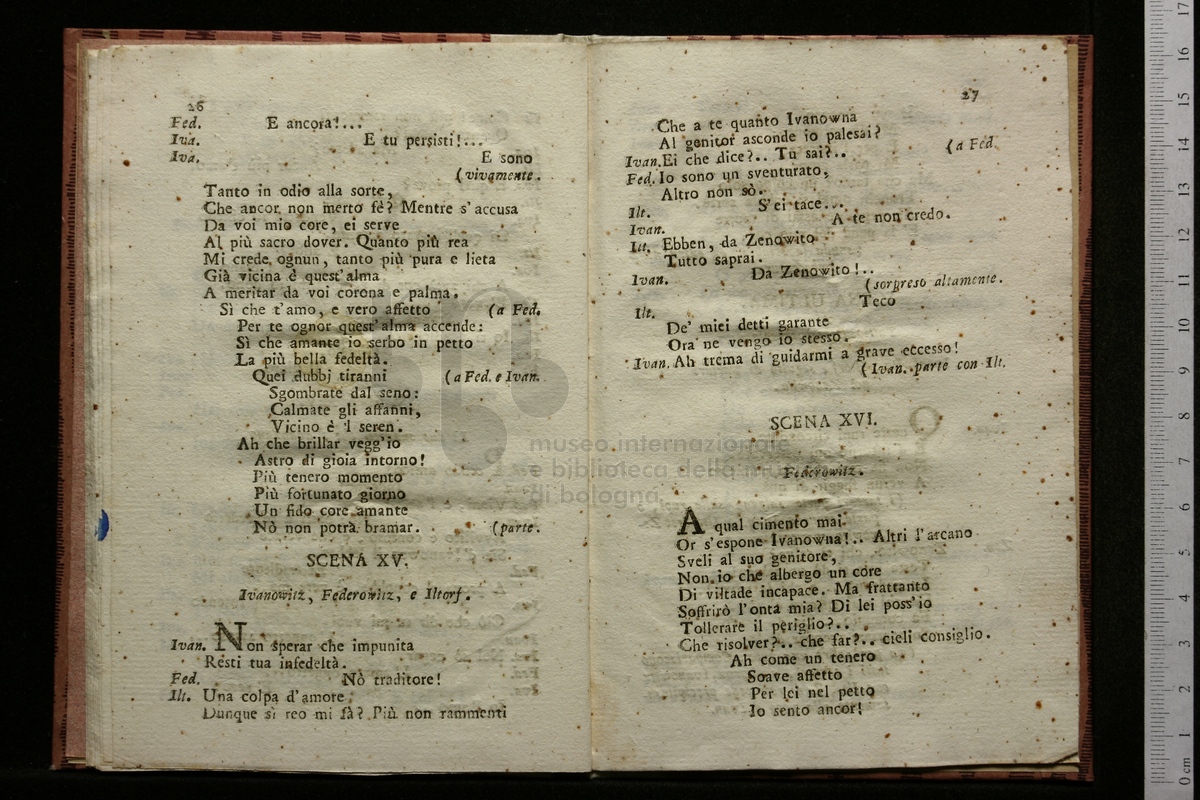 26
Fed. E ancora!...
Iva. E tu persisti!...
Iva. E sono
(vivamente.
Tanto in odio alla sorte,
Che ancor non merto fè? Mentre s'accusa
Da voi mio core, ei serve
Al più sacro dover. Quanto più rea
Mi crede ognun, tanto più pura e lieta
Già vicina è quest'alma
A meritar da voi corona e palma.
Sì che t'amo, e vero affetto (a Fed.
Per te ognor quest'alma accende:
Sì che amante io serbo in petto
La più bella fedeltà.
Quei dubbj tiranni (a Fed. e Ivan.
Sgombrate dal seno:
Calmate gli affanni,
Vicino è 'l seren.
Ah che brillar vegg'io
Astro di gioia intorno!
Più tenero momento
Più fortunato giorno
Un fido core amante
Nò non potrà bramar. (parte.
SCENA XV.
Ivanowitz, Federowitz, e Iltorf.
Ivan. Non sperar che impunita
Resti tua infedeltà.
Fed. Nò traditore!
Ilt. Una colpa d'amore
Dunque sì reo mi fà? Più non rammenti
27
Che a te quanto Ivanowna
Al genitor asconde io palesai?
Ivan. Ei che dice?.. Tu sai?.. (a Fed.
Fed. Io sono un sventurato,
Altro non sò.
Ilt. S'ei tace...
Ivan. A te non credo.
Ilt. Ebben, da Zenowito
Tutto saprai.
Ivan. Da Zenowito!..
(sorpreso altamente.
Ilt. Teco
De' miei detti garante
Ora ne vengo io stesso.
Ivan. Ah trema di guidarmi a grave eccesso!
(Ivan. parte con Ilt.
SCENA XVI.
Federowitz.
A qual cimento mai
Or s'espone Ivanowna!.. Altri l'arcano
Sveli al suo genitore,
Non io che albergo un core
Di viltade incapace. Ma frattanto
Soffrirò l'onta mia? Di lei poss'io
Tollerare il periglio?..
Che risolver?.. che far?.. cieli consiglio.
Ah come un tenero
Soave affetto
Per lei nel petto
Io sento ancor!
museo internazionale
e biblioteca della mu
di bologna